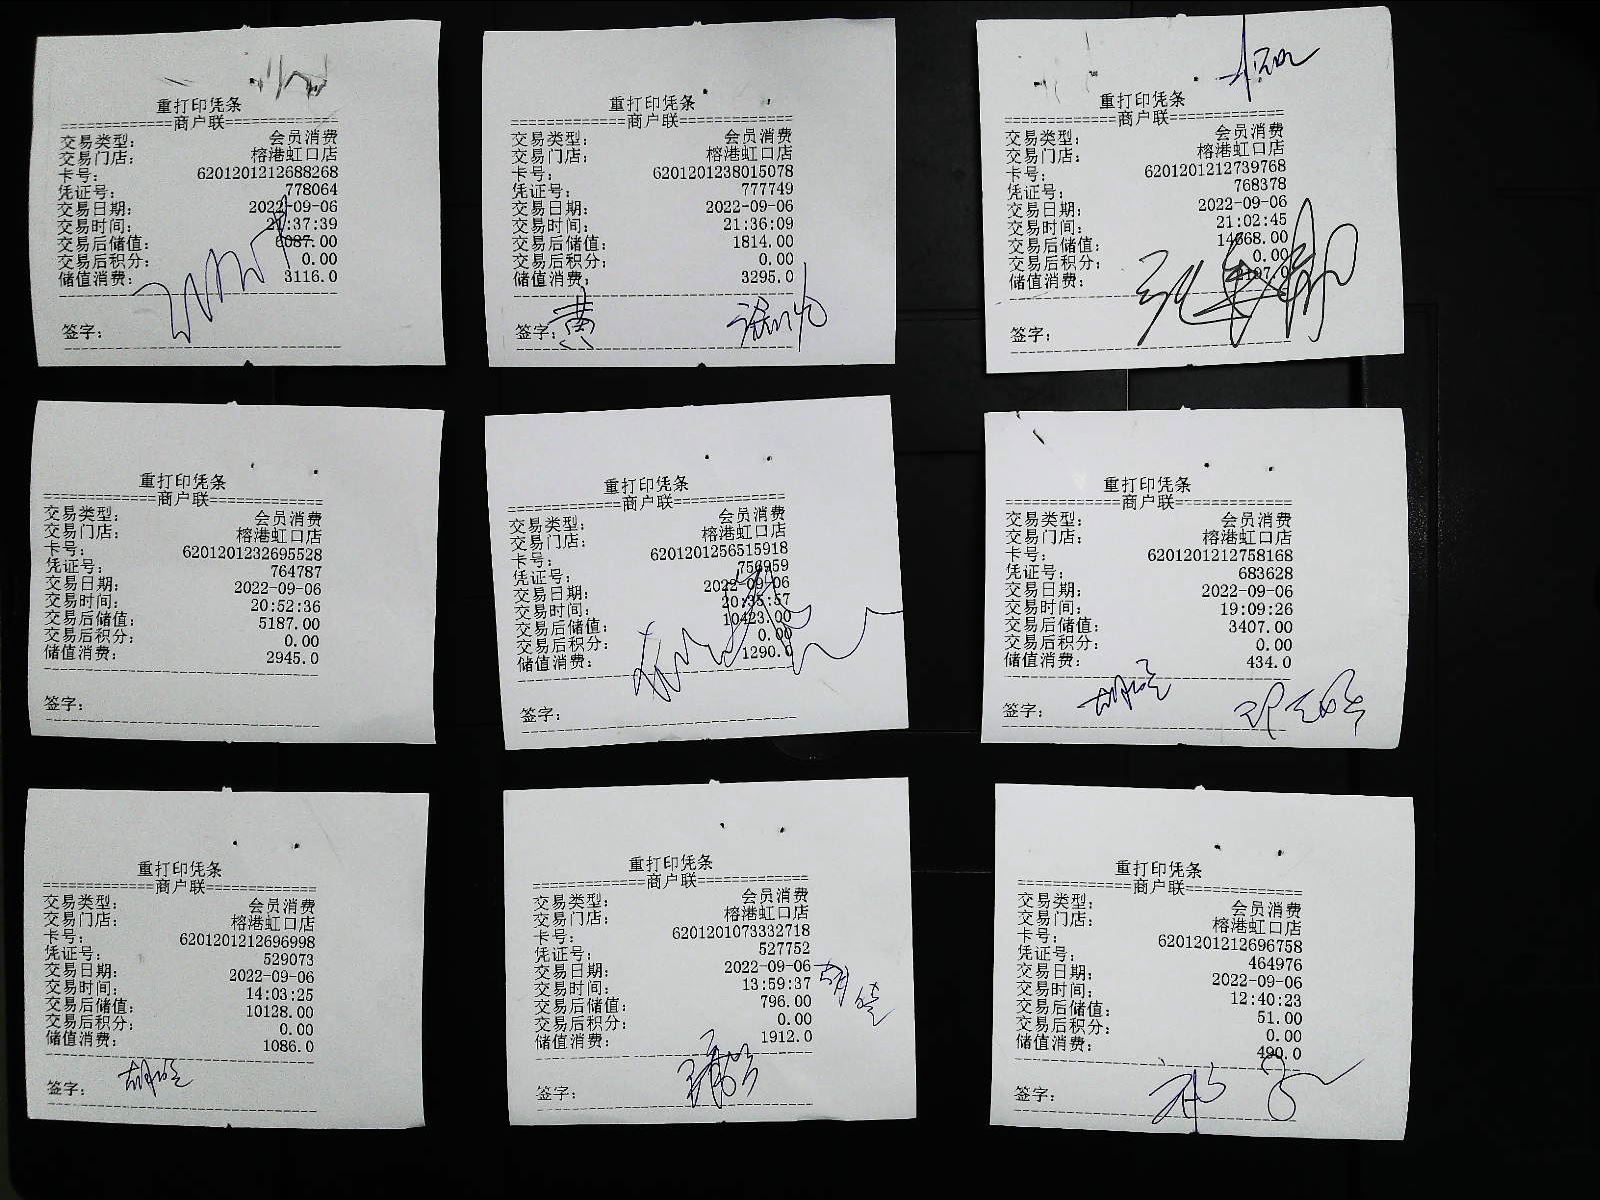 重打印凭条
============商户联============
交易类型: 会员消费
交易门店: 榕港虹口店
卡号: 6201201212688268
凭证号: 778064
交易日期: 2022-09-06
交易时间: 21:37:39
交易后储值: 6087.00
交易后积分: 0.00
储值消费: 3116.0
签字:
重打印凭条
============商户联============
交易类型: 会员消费
交易门店: 榕港虹口店
卡号: 6201201238015078
凭证号: 777749
交易日期: 2022-09-06
交易时间: 21:36:09
交易后储值: 1814.00
交易后积分: 0.00
储值消费: 3295.0
签字: 黄
重打印凭条
============商户联============
交易类型: 会员消费
交易门店: 榕港虹口店
卡号: 6201201212739768
凭证号: 768378
交易日期: 2022-09-06
交易时间: 21:02:45
交易后储值: 14668.00
交易后积分: 0.00
储值消费:
签字:
重打印凭条
============商户联============
交易类型: 会员消费
交易门店: 榕港虹口店
卡号: 6201201232695528
凭证号: 764787
交易日期: 2022-09-06
交易时间: 20:52:36
交易后储值: 5187.00
交易后积分: 0.00
储值消费: 2945.0
签字:
重打印凭条
============商户联============
交易类型: 会员消费
交易门店: 榕港虹口店
卡号: 6201201256515918
凭证号: 756959
交易日期: 2022-09-06
交易时间: 20:35:57
交易后储值: 10423.00
交易后积分: 0.00
储值消费: 1290.0
签字:
重打印凭条
============商户联============
交易类型: 会员消费
交易门店: 榕港虹口店
卡号: 6201201212758168
凭证号: 683628
交易日期: 2022-09-06
交易时间: 19:09:26
交易后储值: 3407.00
交易后积分: 0.00
储值消费: 434.0
签字:
重打印凭条
============商户联============
交易类型: 会员消费
交易门店: 榕港虹口店
卡号: 6201201212696998
凭证号: 529073
交易日期: 2022-09-06
交易时间: 14:03:25
交易后储值: 10128.00
交易后积分: 0.00
储值消费: 1086.0
签字:
重打印凭条
============商户联============
交易类型: 会员消费
交易门店: 榕港虹口店
卡号: 6201201073332718
凭证号: 527752
交易日期: 2022-09-06
交易时间: 13:59:37
交易后储值: 796.00
交易后积分: 0.00
储值消费: 1912.0
签字:
重打印凭条
============商户联============
交易类型: 会员消费
交易门店: 榕港虹口店
卡号: 6201201212696758
凭证号: 464976
交易日期: 2022-09-06
交易时间: 12:40:23
交易后储值: 51.00
交易后积分: 0.00
储值消费: 490.0
签字: